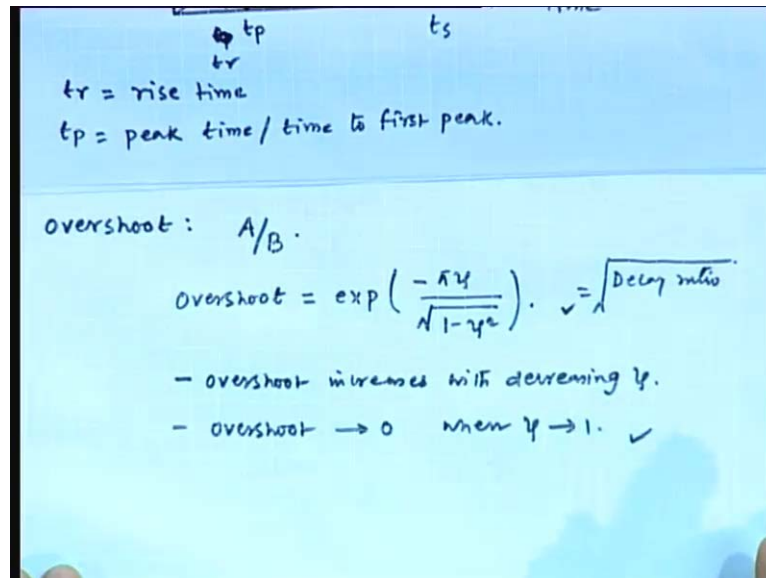 tp ts
tr
tr = rise time
tp = peak time / time to first peak.
overshoot : A/B .
overshoot = exp ( -πψ / √1-ψ² ) . ✓ = √Decay ratio
- overshoot increases with decreasing ψ.
- overshoot → 0 when ψ → 1. ✓